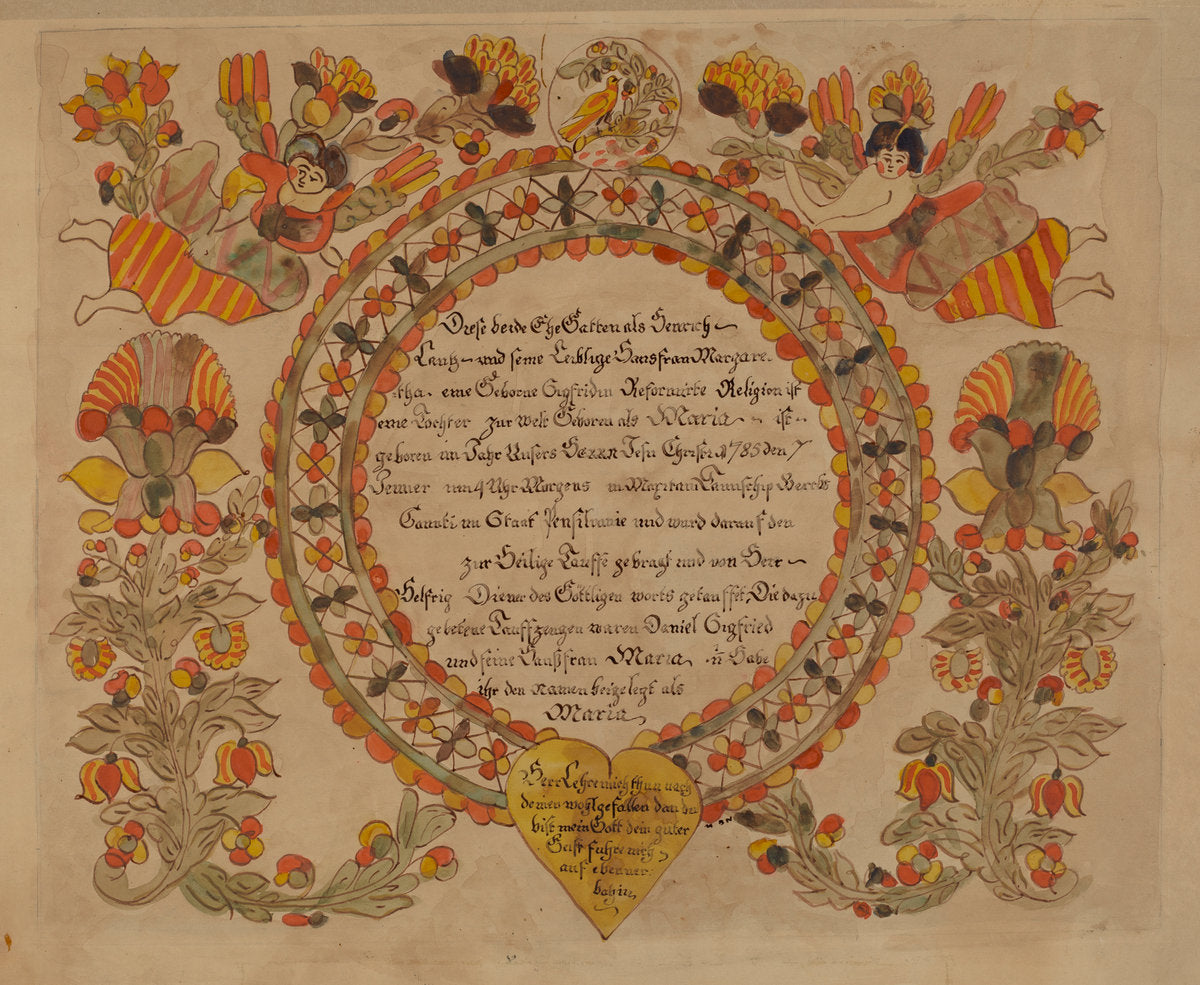 Diese beide Ehe Gatten als Henrich
Lantz und seine Leiblige Hausfrau Margare-
tha eine Geborne Sigfridin Reformirte Religion ist
eine Tochter zur Welt Geboren als Maria ist
geboren im Jahr Unsers Herrn Jesu Christi 1785 den 7
Jenner um 4 Uhr Morgens in Maxitani Taunschip Bercks
Caunti im Staat Pensilvanie und ward darauf den
zur Heilige Tauffe gebragt und von Herr
Helfrig Diener des Göttligen worts getauffet Die dazu
gebetene Tauffzeugen waren Daniel Sigfried
und seine Hausfrau Maria Habe
ihr den Namen beigelegt als
Maria
Herr Lehre mich thun nach
deinen wohlgefallen dan du
bist mein Gott dein guter
Geist fuhre mich
auf ebener
bahn